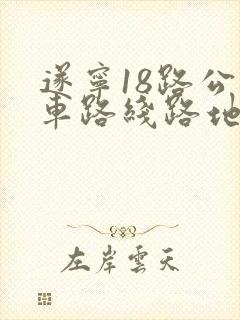 遂寧18路公
車路綫路地
左岸雲天